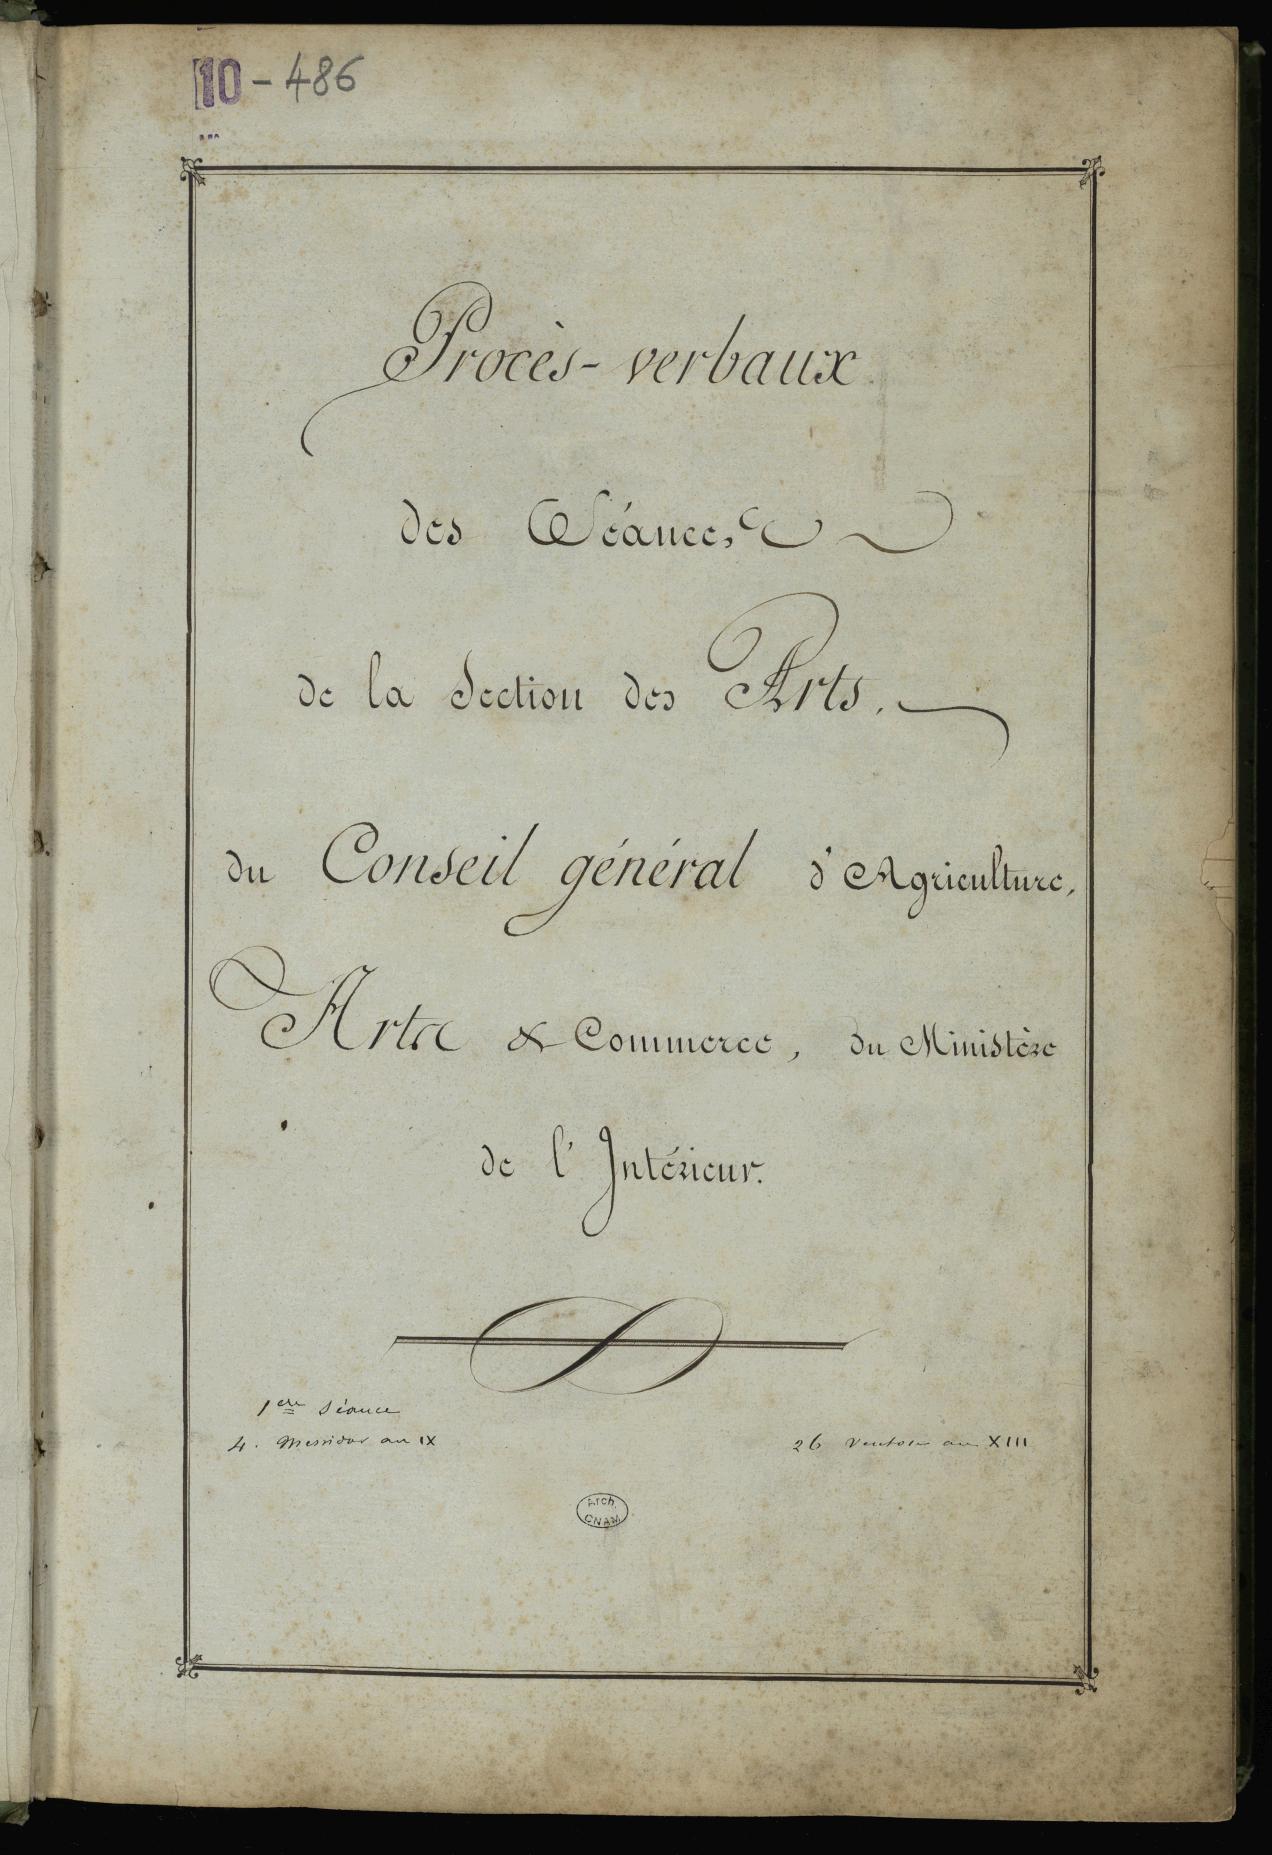 10 - 486
Procès-verbaux
des Séances
de la Section des Arts.
du Conseil général d'Agriculture,
Arts & Commerce, du Ministère
de l'Intérieur.
1ere Séance
4. Messidor an IX
26 Ventose an XIII
Arch.
CNAM